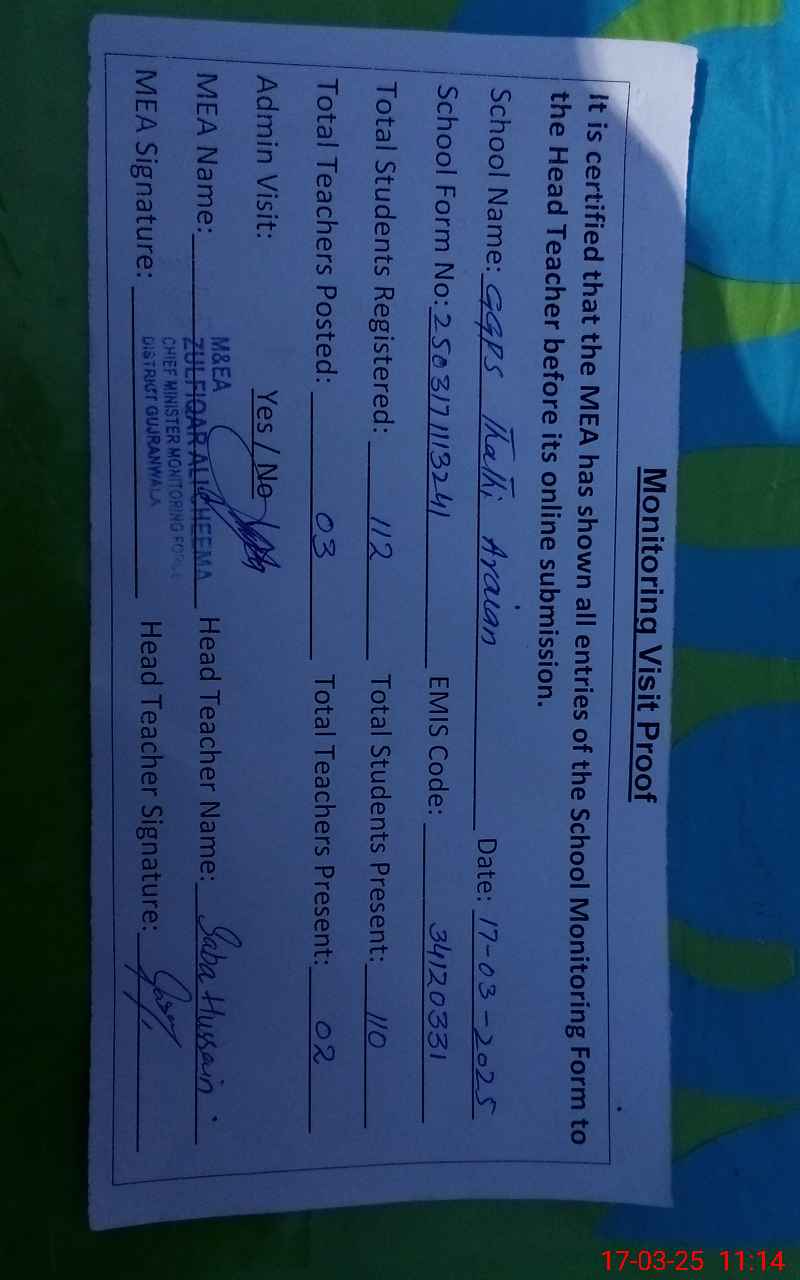 Monitoring Visit Proof
It is certified that the MEA has shown all entries of the School Monitoring Form to
the Head Teacher before its online submission.
School Name: GGPS Thathi Araian Date: 17-03-2025
School Form No: 2503171113241 EMIS Code: 34120331
Total Students Registered: 112 Total Students Present: 110
Total Teachers Posted: 03 Total Teachers Present: 02
Admin Visit: Yes / No
M&EA
MEA Name: ZULFIQAR ALI CHEEMA Head Teacher Name: Saba Hussain
CHIEF MINISTER MONITORING FORCE
MEA Signature: DISTRICT GUJRANWALA Head Teacher Signature:
17-03-25 11:14